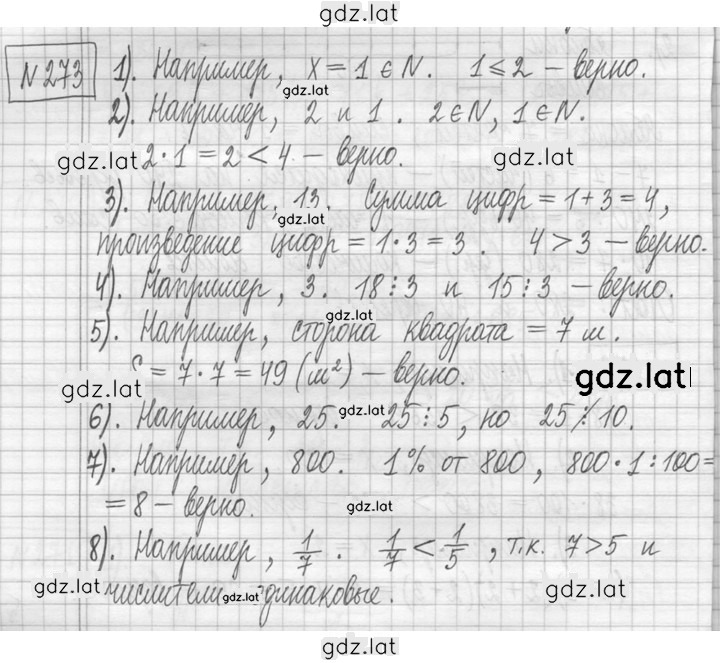 gdz.lat
N 273 1). Например, x = 1 ∈ N. 1 ≤ 2 – верно.
gdz.lat
2). Например, 2 и 1. 2 ∈ N, 1 ∈ N.
gdz.lat 2·1 = 2 < 4 – верно. gdz.lat
3). Например, 13. Сумма цифр = 1 + 3 = 4,
gdz.lat
произведение цифр = 1·3 = 3. 4 > 3 – верно.
4). Например, 3. 18⋮3 и 15⋮3 – верно.
gdz.lat
5). Например, сторона квадрата = 7 м.
gdz.lat S = 7·7 = 49 (м²) – верно. gdz.lat
6). Например, 25. gdz.lat 25⋮5, но 25 ⋮̸ 10.
7). Например, 800. 1% от 800, 800·1:100 =
= 8 – верно. gdz.lat
8). Например, 1/7. 1/7 < 1/5, т.к. 7 > 5 и
gdz.lat числители gdz.lat одинаковые. gdz.lat
gdz.lat